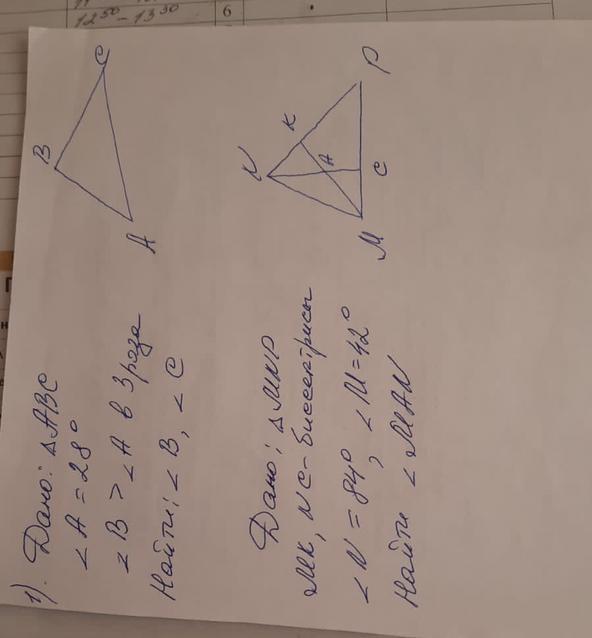 12⁵⁰ - 13³⁰
6
1). Дано: △ABC
∠A = 28°
∠B > ∠A в 3 раза
Найти: ∠B, ∠C
A
B
C
Дано: △MNP
MK, NC - биссектрисы
∠N = 84°, ∠M = 42°
Найти ∠MAN
M
N
K
A
C
P